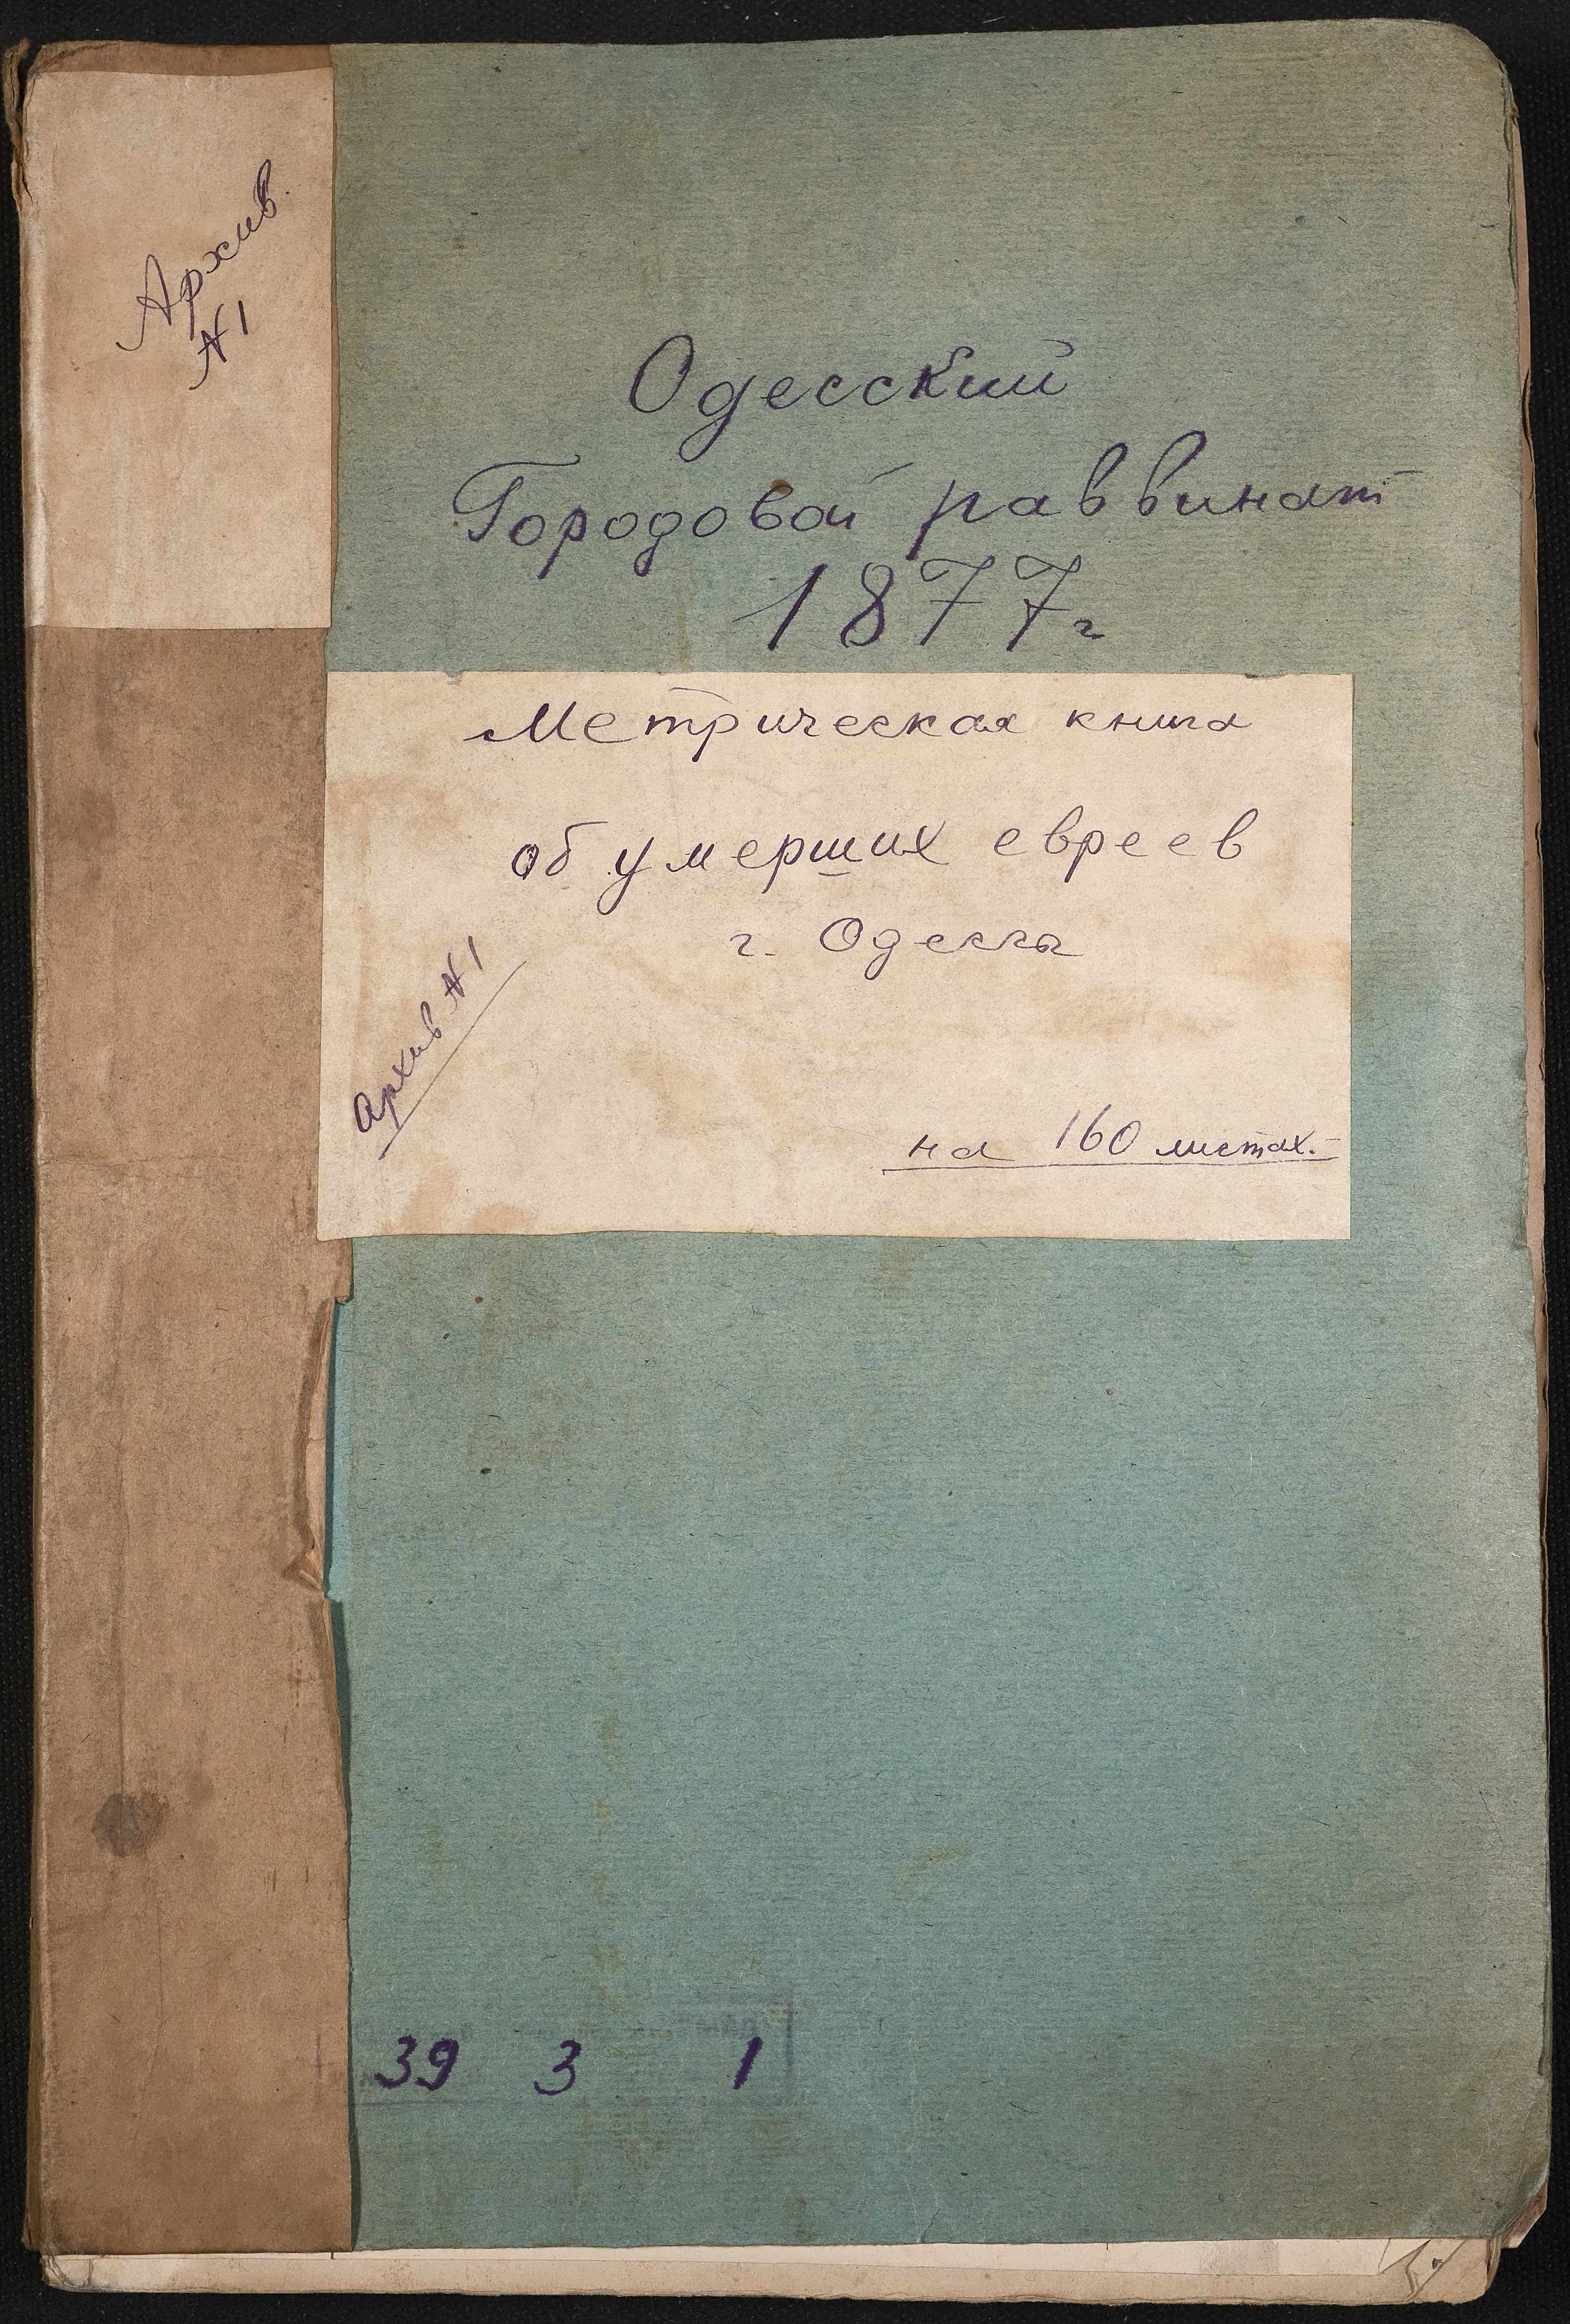 Архив
№1
Одесский
Городовой раввинат
1877г
Метрическая книга
об умерших евреев
г. Одесса
Архив №1
на 160 листах.
39 3 1